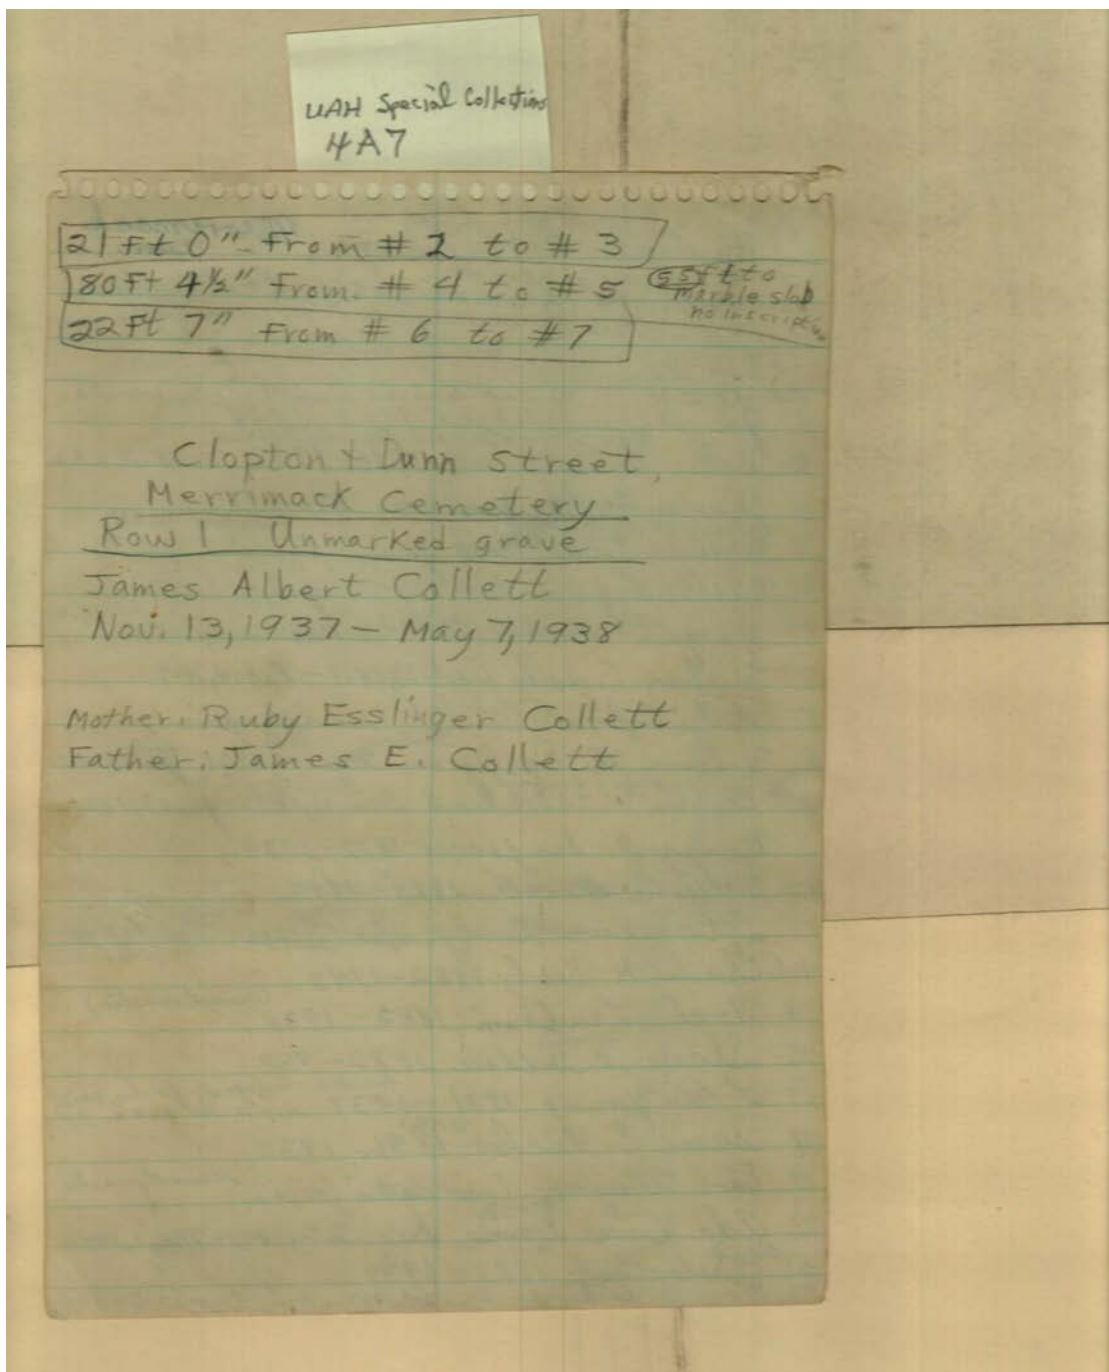 UAH Special Collections
4A7
21 ft 0" From # 2 to # 3
80 Ft 4½" From. # 4 to # 5
55 ft to
Marble slab
no Inscription
22 Ft 7" From # 6 to # 7
Clopton + Dunn Street,
Merrimack Cemetery
Row 1 Unmarked grave
James Albert Collett
Nov. 13, 1937 - May 7, 1938
Mother. Ruby Esslinger Collett
Father. James E. Collett